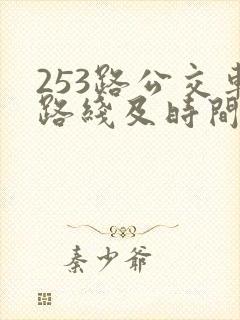 253路公交車
路綫及時間
秦少爺